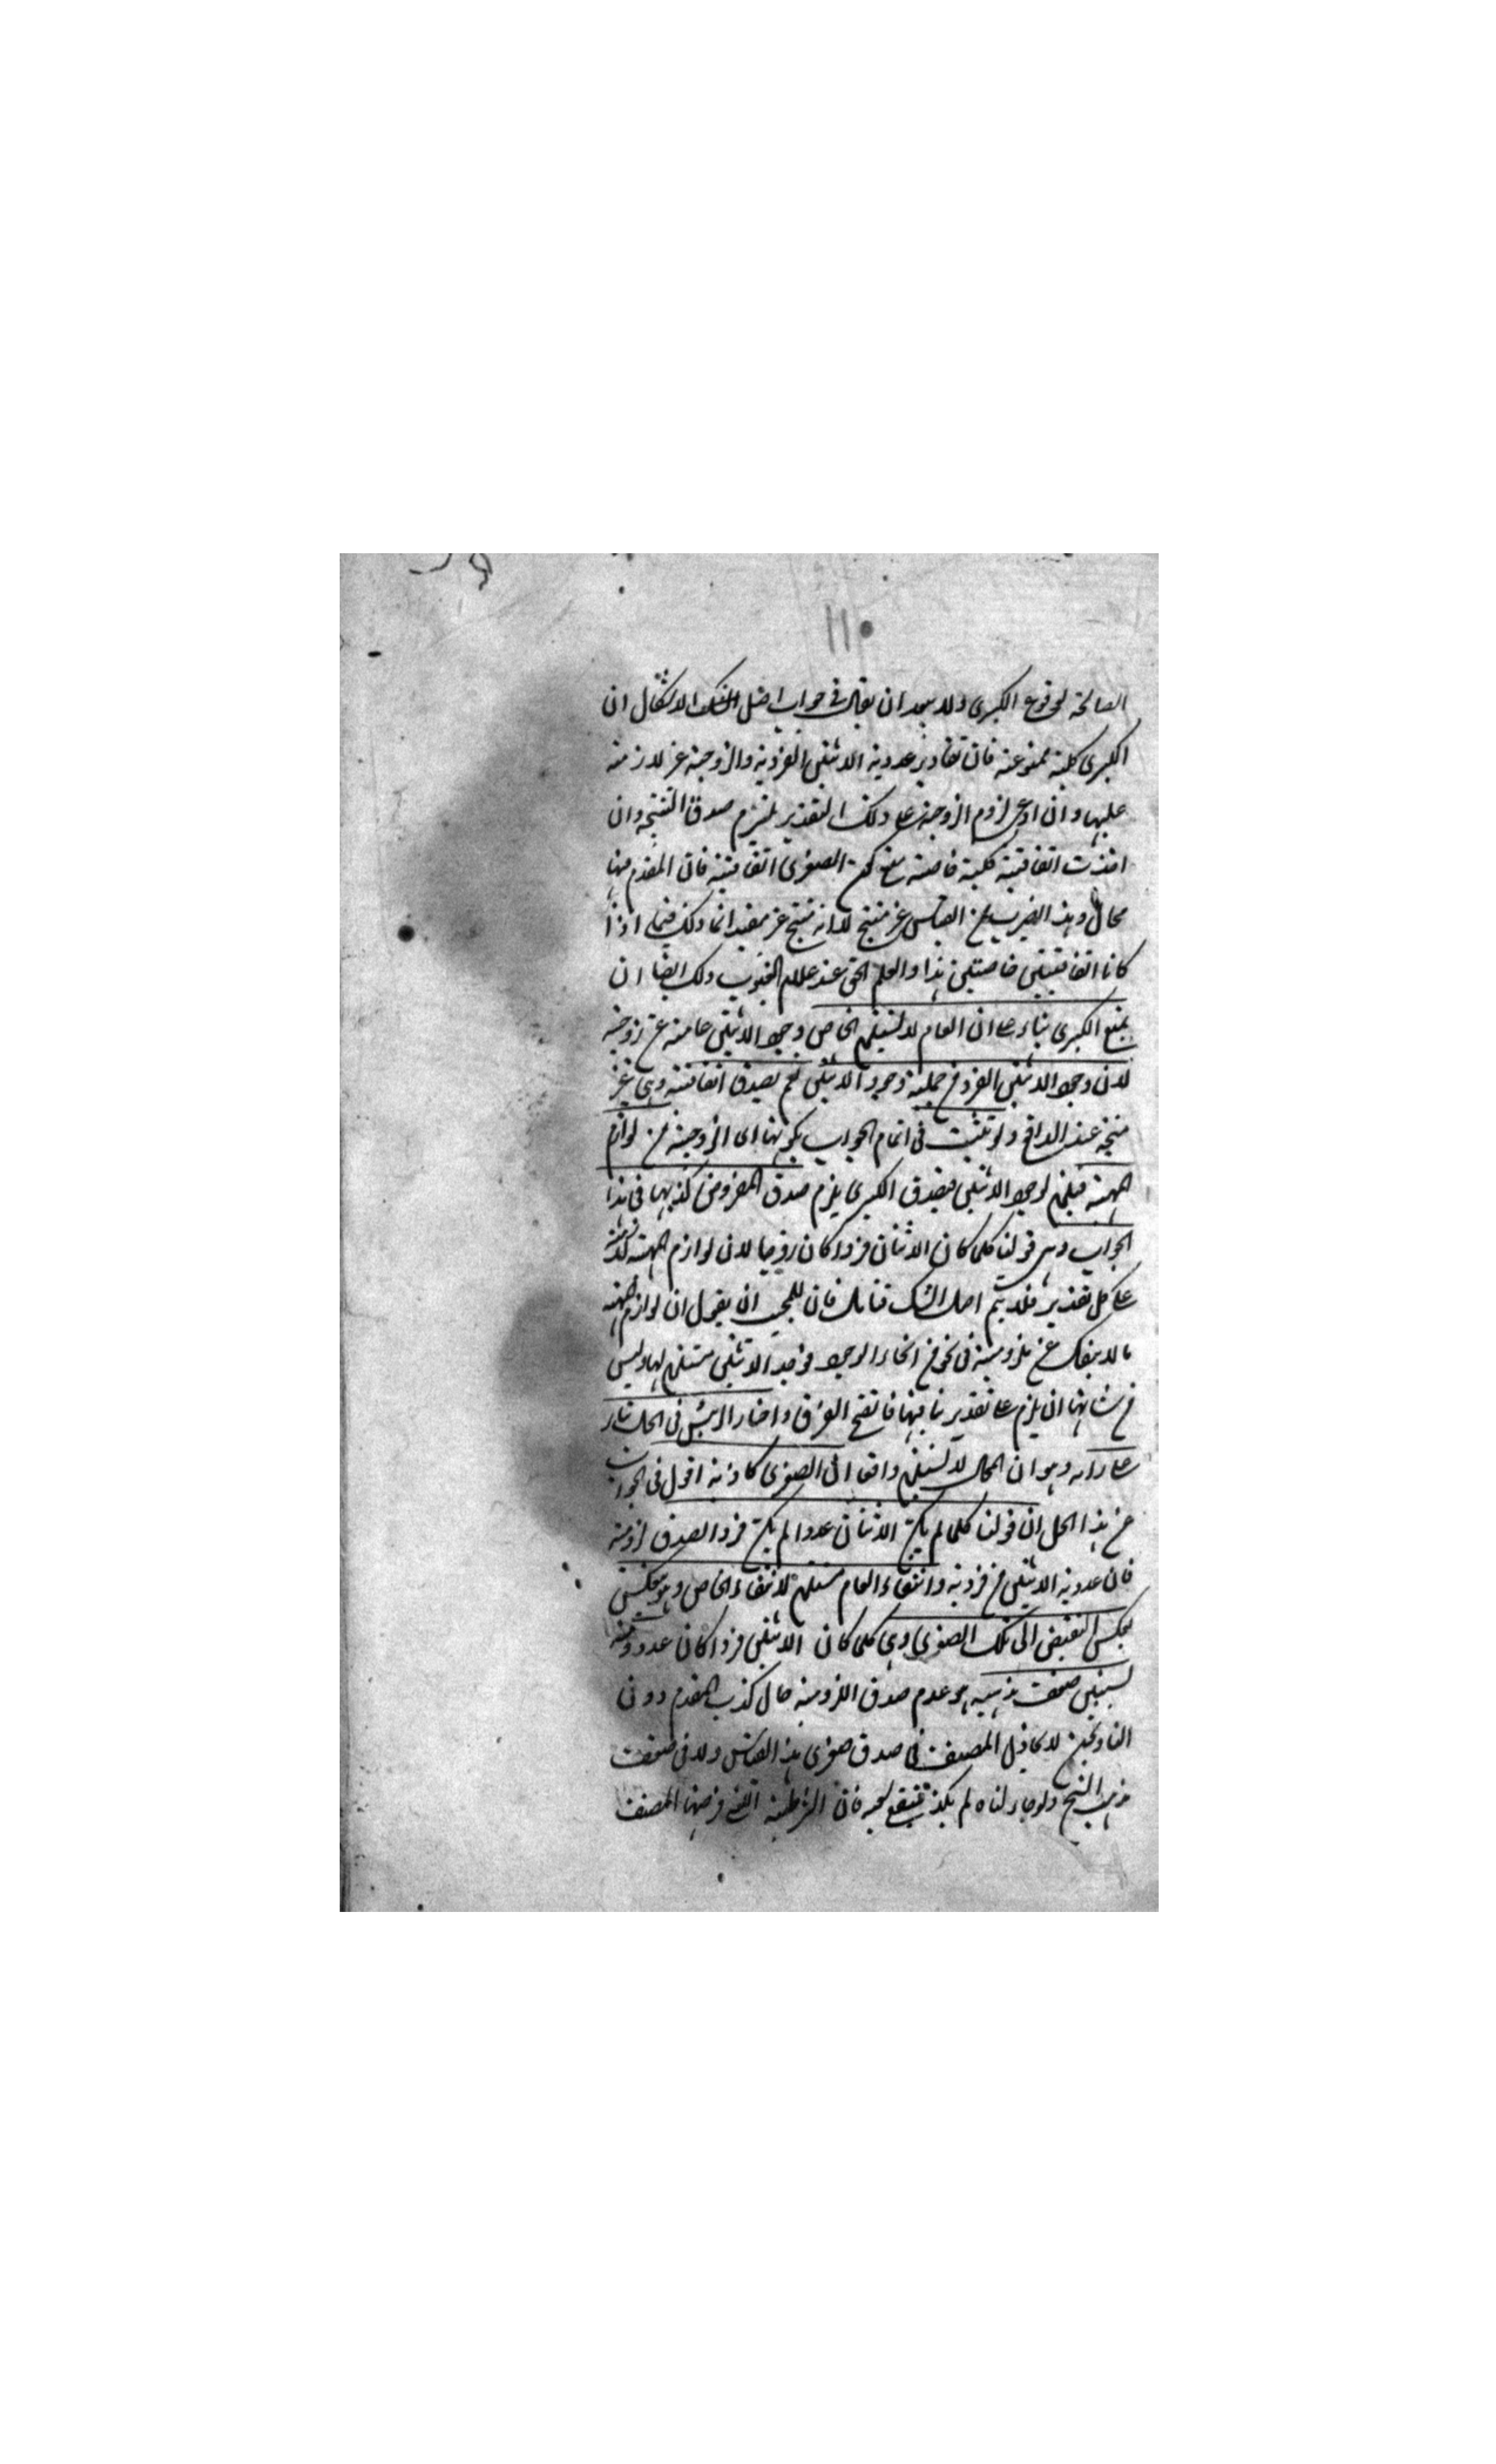 الصالحة لوقوع الكبرى ولا يبعد ان يقال فى جواب اصل الشك الاشكال ان
الكبرى كلية ممنوعة فان تقادير عددية الاثنين الفردية والزوجية غير لازمة
عليها وان ادعى لزوم الزوجية على ذلك التقدير يلتزم صدق النتيجة وان
اخذت اتفاقية كلية خاصة الصغرى اتفاقية فان المقدم فيها
محال وهذا الضرب من القياس غير منتج لا انه منتج غير مفيد انما ذلك فيما اذا
كانتا اتفاقيتين خاصتين هذا والعلم الحق عند علام الغيوب ولك ايضا ان
تمنع الكبرى بناء على ان العام لا يستلزم الخاص وجود الاثنين عامته عن زوجية
لان وجود الاثنين الفرد من جملة وجود الاثنين نعم يصدق اتفاقية وهى غير
منتجة عند الواقع ولو تشبث فى اتمام الجواب بكونها اى الزوجية من لوازم
المهية فيلزم لوجود الاثنين فيصدق الكبرى يلزم صدق المفروض كذبها فى هذا
الجواب وهى قولنا كلما كان الاثنان فردا كان زوجا لان لوازم المهية لازمة
على كل تقدير فلا يتم اصل الشك فتامل فان للمجيب ان يقول ان لوازم المهية
ما لا ينفك عن ملزومية فى نحو من انحاء الوجود فوجود الاثنين مستلزم لها وليس
من شانها ان يلزم على تقدير ينافيها فاتضح الفرق واختار الرئيس فى الحل بناء
على رايه وهو ان المحال لا يستلزم واقعا ان الصغرى كاذبة اقول فى الجواب
عن هذا الحل ان قولنا كلما لم يكن الاثنان عددا لم يكن فردا يصدق لزومية
فان عددية الاثنين من فردية وانتفاء العام مستلزم لانتفاء الخاص وهو ينعكس
بعكس النقيض الى تلك الصغرى وهى كلما كان الاثنين فردا كان عددا ومنه
يستبين ضعف مذهبه هو عدم صدق اللزومية حال كذب المقدم دون
التالى لا كما قيل المصنف فى صدق صغرى هذا القياس ولا فى ضعف
مذهب الشيخ ولو جاء لناه لم يكن فان الشرطية التى فرضها المصنف